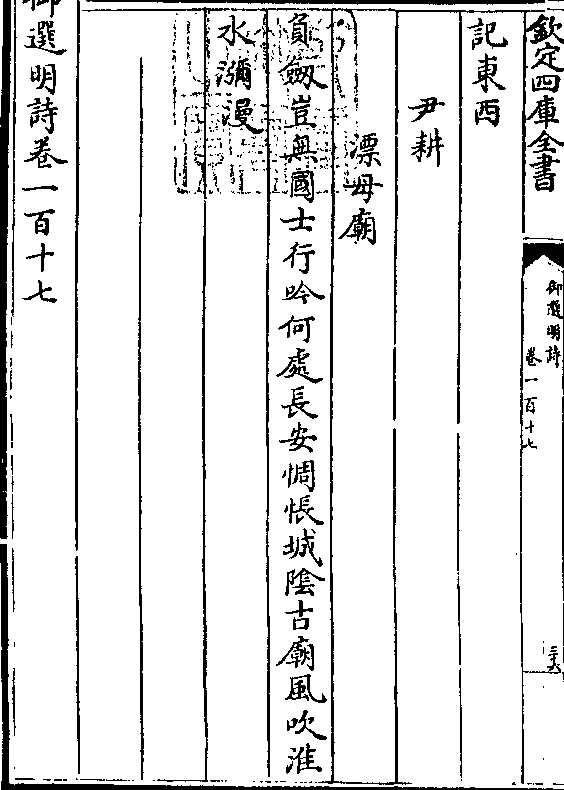 欽定四庫全書
御選明詩
卷一百十七
三十六
記東西
尹耕
漂母廟
負劔豈無國士行吟何處長安惆悵城隂古廟風吹淮
水瀰漫
御選明詩卷一百十七